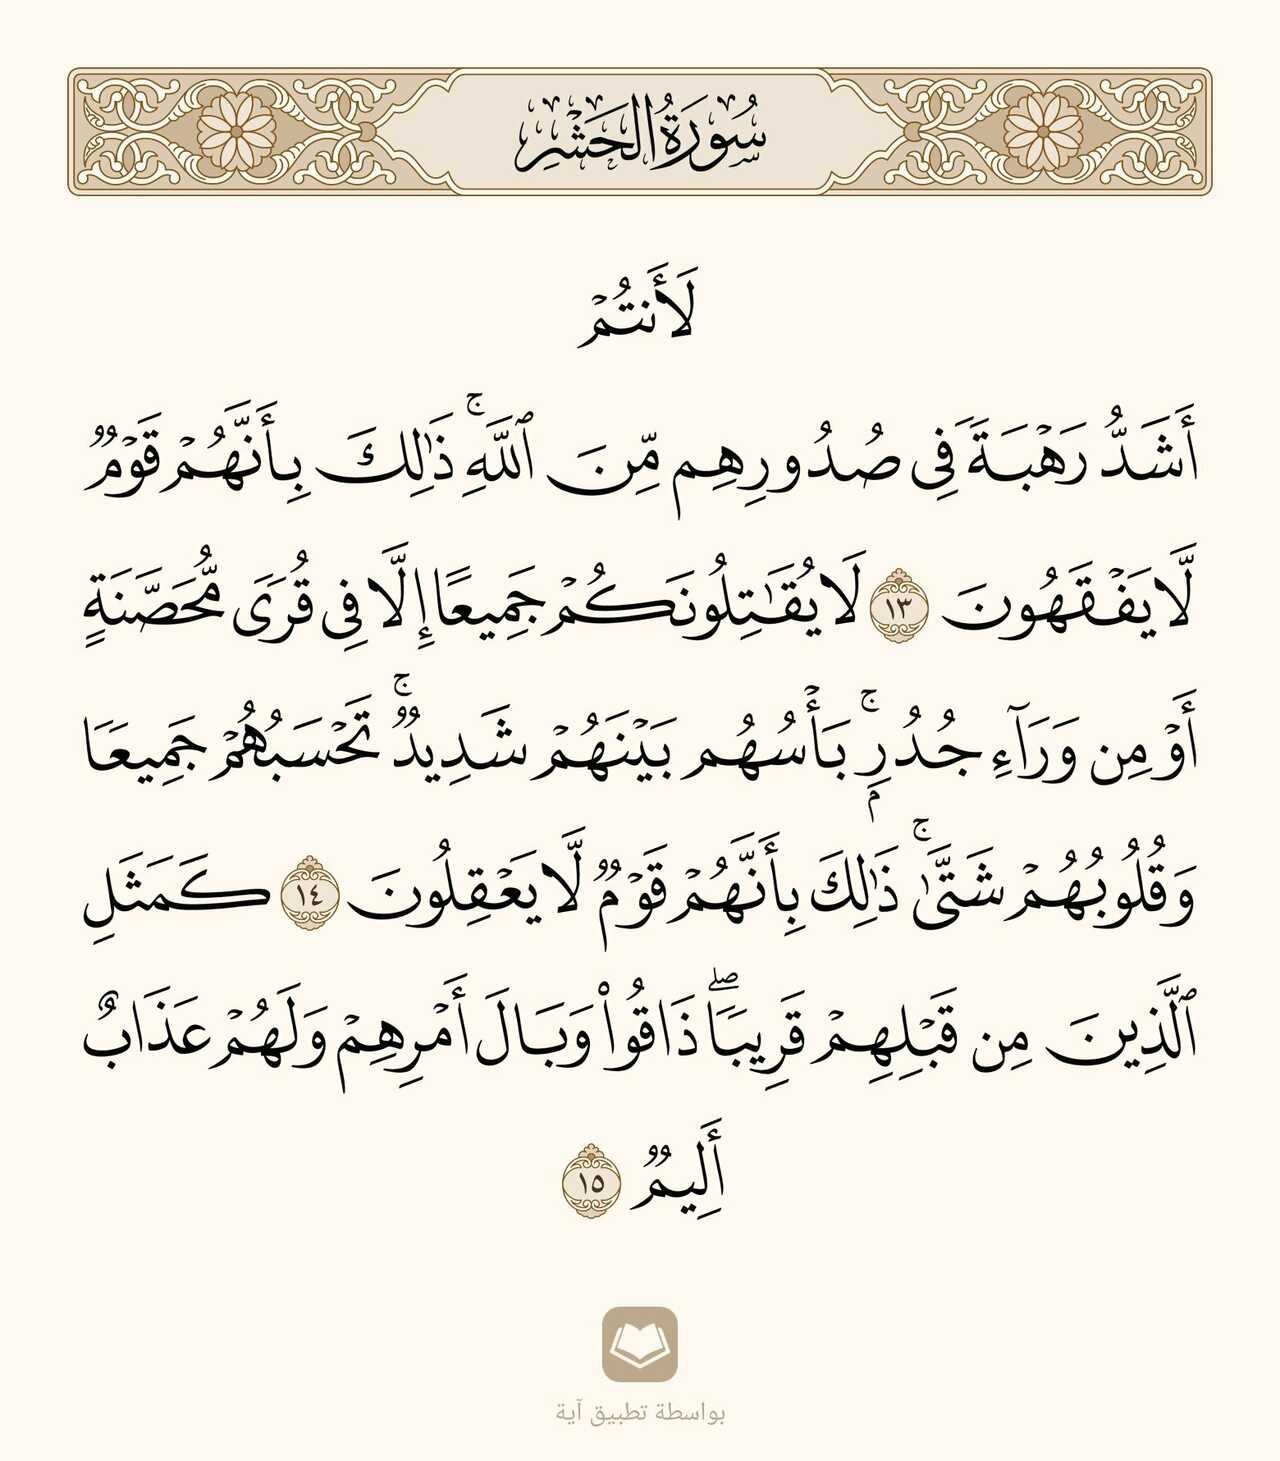 سُورَةُ الحَشْرِ
لَأَنتُمۡ
أَشَدُّ رَهۡبَةٗ فِي صُدُورِهِم مِّنَ ٱللَّهِۚ ذَٰلِكَ بِأَنَّهُمۡ قَوۡمٞ
لَّا يَفۡقَهُونَ ١٣ لَا يُقَٰتِلُونَكُمۡ جَمِيعًا إِلَّا فِي قُرٗى مُّحَصَّنَةٍ
أَوۡ مِن وَرَآءِ جُدُرِۭۚ بَأۡسُهُم بَيۡنَهُمۡ شَدِيدٞۚ تَحۡسَبُهُمۡ جَمِيعٗا
وَقُلُوبُهُمۡ شَتَّىٰۚ ذَٰلِكَ بِأَنَّهُمۡ قَوۡمٞ لَّا يَعۡقِلُونَ ١٤ كَمَثَلِ
ٱلَّذِينَ مِن قَبۡلِهِمۡ قَرِيبٗاۖ ذَاقُواْ وَبَالَ أَمۡرِهِمۡ وَلَهُمۡ عَذَابٌ
أَلِيمٞ ١٥
بواسطة تطبيق آية